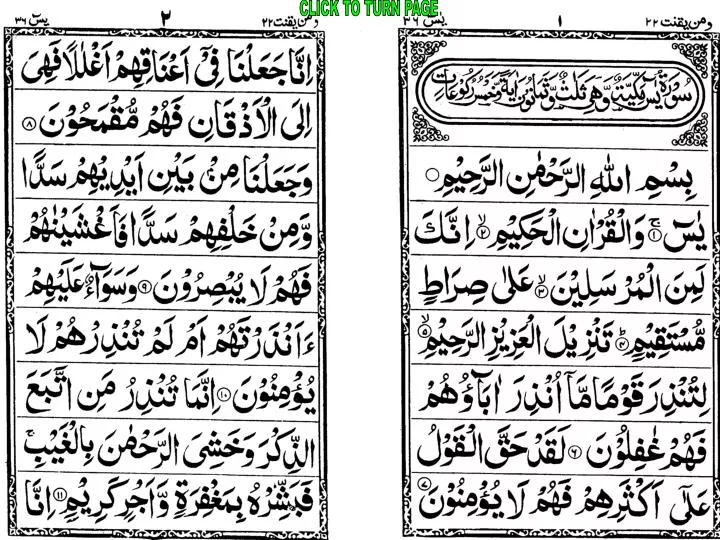 CLICK TO TURN PAGE
ومن يقنت ٢٢
١
يٰسٓ ٣٦
سُوْرَةُ يٰسٓ مَكِّيَّةٌ وَّهِيَ ثَلٰثٌ وَّثَمَانُوْنَ اٰيَةً وَّخَمْسُ رُكُوْعَاتٍ
بِسْمِ اللهِ الرَّحْمٰنِ الرَّحِيْمِ
يٰسٓ ۚ ﴿١﴾ وَالْقُرْاٰنِ الْحَكِيْمِ ۙ ﴿٢﴾ اِنَّكَ
لَمِنَ الْمُرْسَلِيْنَ ۙ ﴿٣﴾ عَلٰى صِرَاطٍ
مُّسْتَقِيْمٍ ؕ ﴿٤﴾ تَنْزِيْلَ الْعَزِيْزِ الرَّحِيْمِ ۙ ﴿٥﴾
لِتُنْذِرَ قَوْمًا مَّاۤ اُنْذِرَ اٰبَآؤُهُمْ
فَهُمْ غٰفِلُوْنَ ﴿٦﴾ لَقَدْ حَقَّ الْقَوْلُ
عَلٰٓى اَكْثَرِهِمْ فَهُمْ لَا يُؤْمِنُوْنَ ﴿٧﴾
ومن يقنت ٢٢
٢
يٰسٓ ٣٦
اِنَّا جَعَلْنَا فِيْۤ اَعْنَاقِهِمْ اَغْلٰلًا فَهِيَ
اِلَى الْاَذْقَانِ فَهُمْ مُّقْمَحُوْنَ ﴿٨﴾
وَجَعَلْنَا مِنْۢ بَيْنِ اَيْدِيْهِمْ سَدًّا
وَّمِنْ خَلْفِهِمْ سَدًّا فَاَغْشَيْنٰهُمْ
فَهُمْ لَا يُبْصِرُوْنَ ﴿٩﴾ وَسَوَآءٌ عَلَيْهِمْ
ءَاَنْذَرْتَهُمْ اَمْ لَمْ تُنْذِرْهُمْ لَا
يُؤْمِنُوْنَ ﴿١٠﴾ اِنَّمَا تُنْذِرُ مَنِ اتَّبَعَ
الذِّكْرَ وَخَشِيَ الرَّحْمٰنَ بِالْغَيْبِ ۚ
فَبَشِّرْهُ بِمَغْفِرَةٍ وَّاَجْرٍ كَرِيْمٍ ﴿١١﴾ اِنَّا